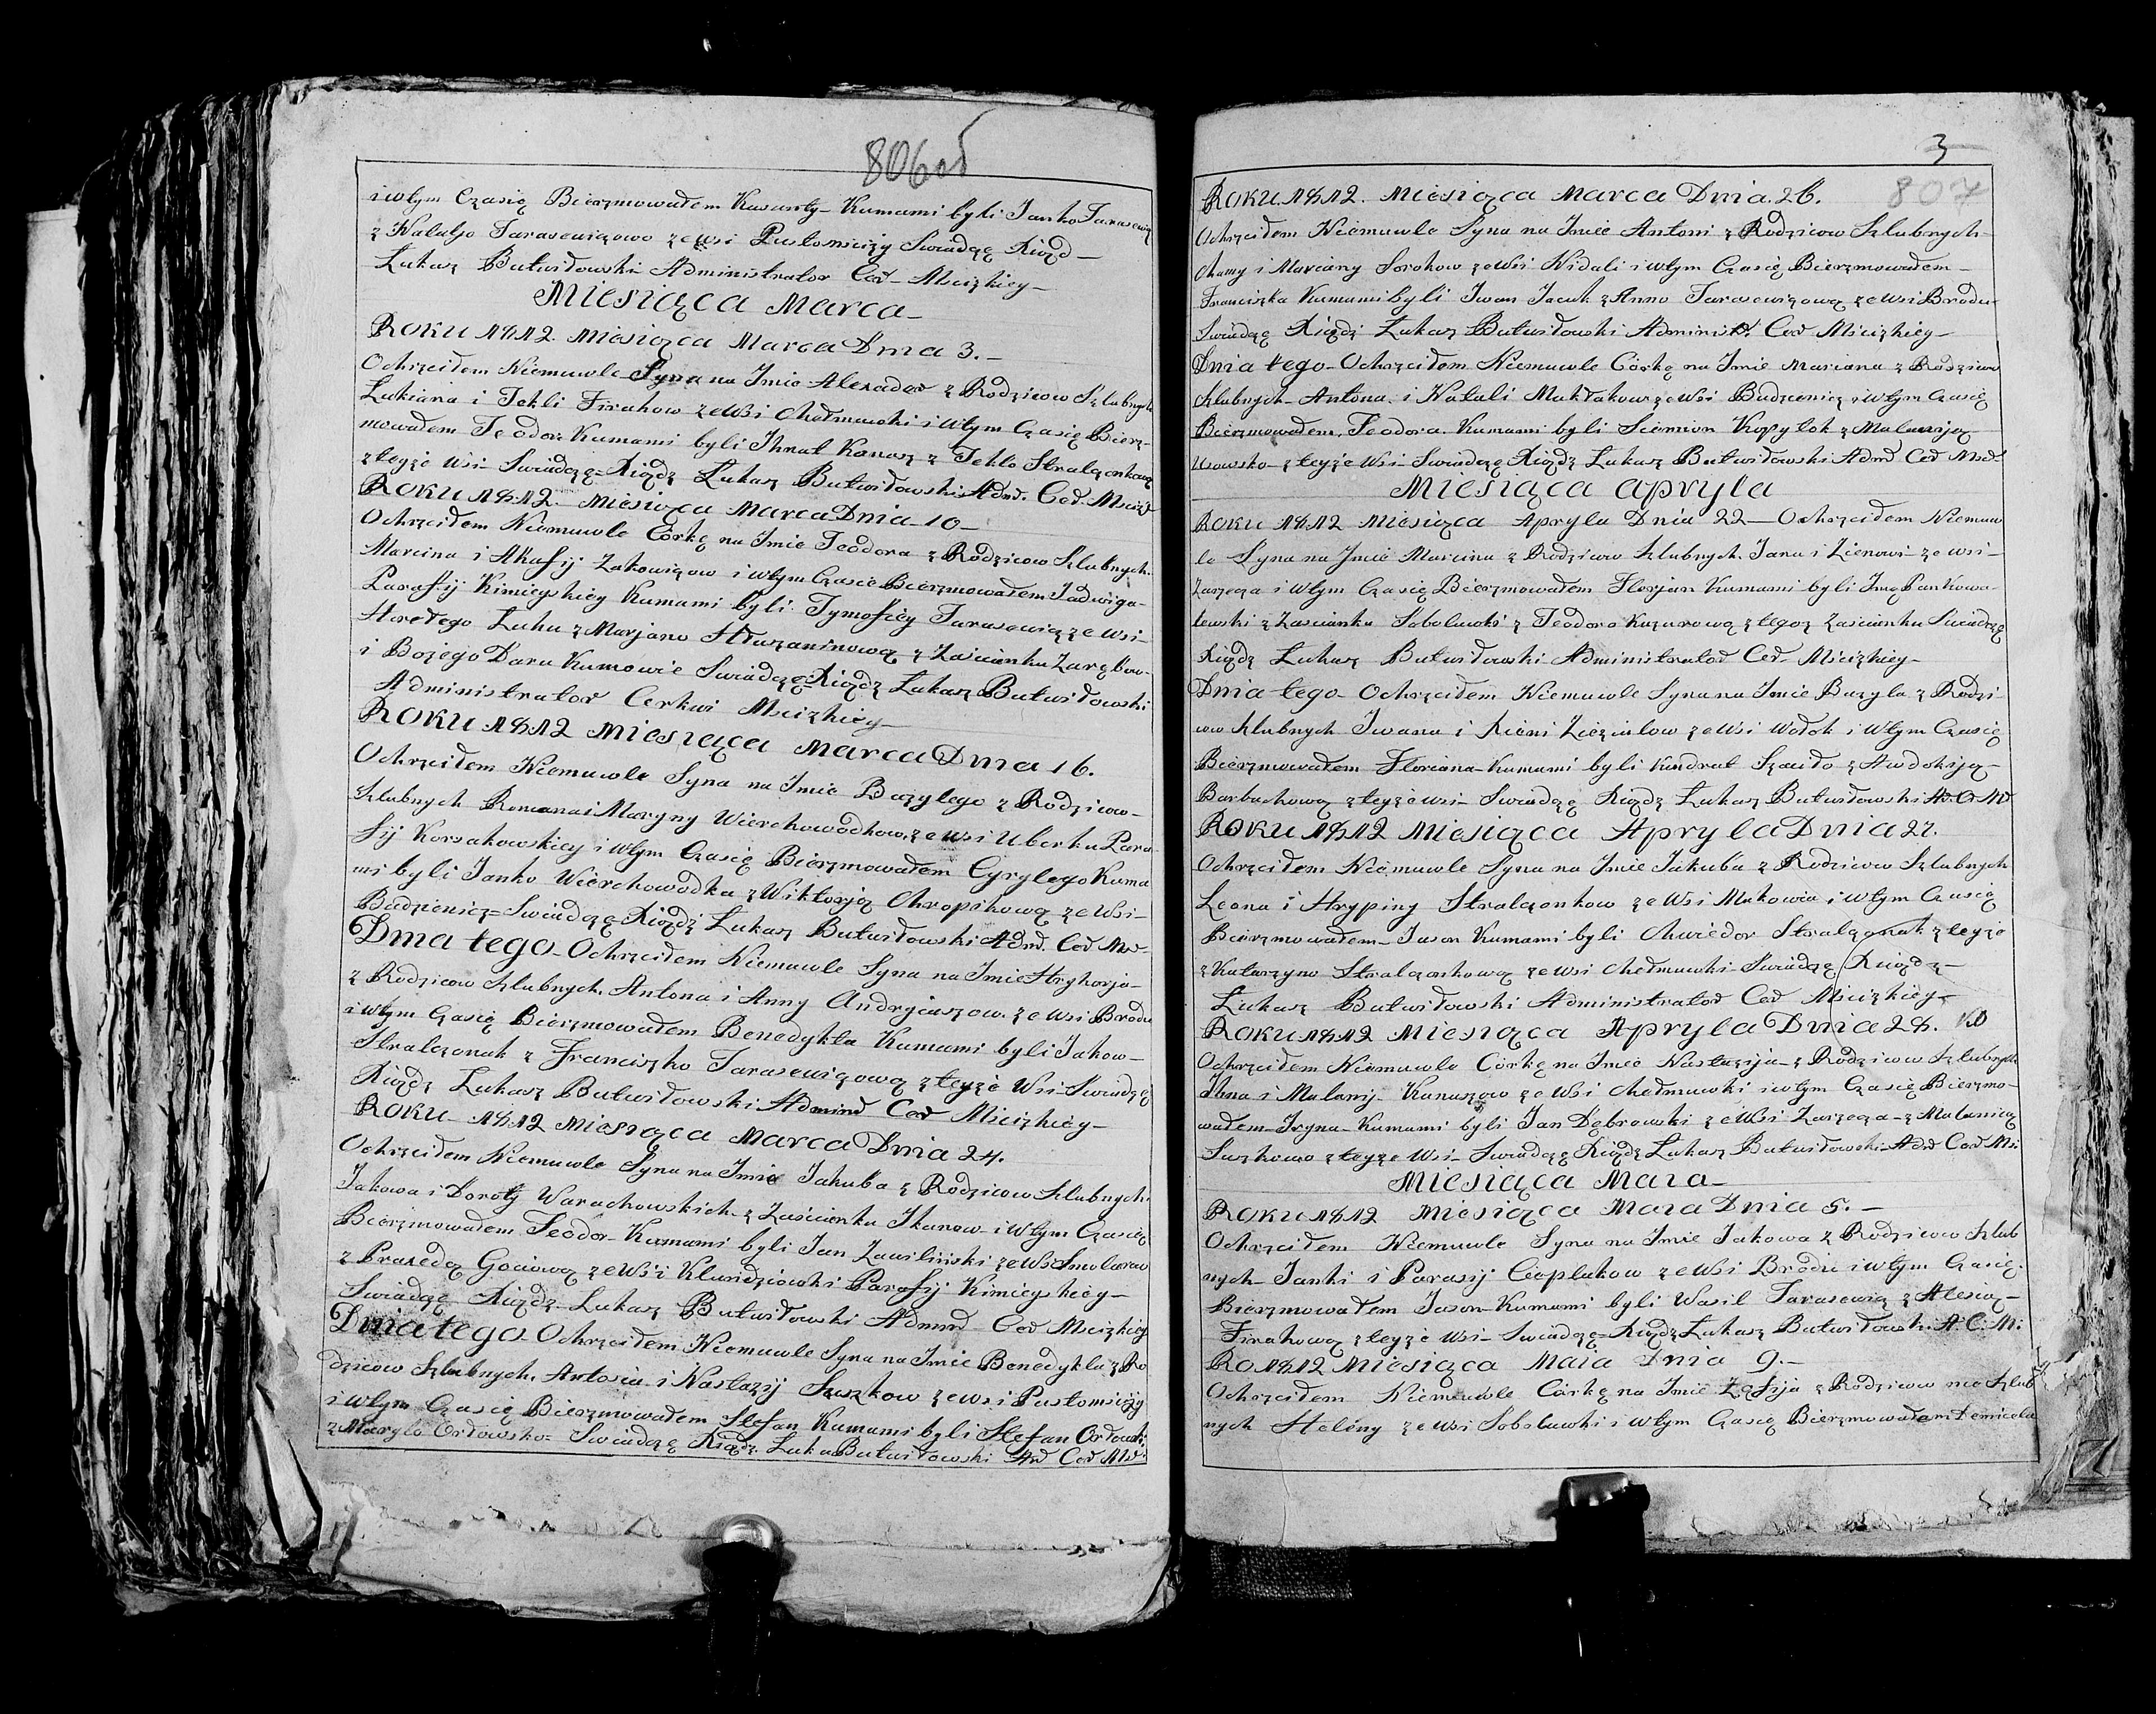 806об
i wtym Czasię Bierzmowałem Kasanty- Kumami byli Janko Tarasewiç
z Natalyo Tarasewiçowo ze wsi Pustomsciży Swiadczę Xiądz
Łukasz Butwiłowski Administrator Cer- Mscizkiey-
Miesiąca Marca-
Roku 1812. Miesiąca Marca Dnia 3.-
Ochrzciłem Niemuwle Syna na Jmie Alexader z Rodzicow Szlubnych
Lukiana i Tekli Finahow ze wsi Chełmuwki i wtym Czasię Bierz-
mowałem Teodor. Kumami byli Jhnat Kanasz z Teklo Stralczonkową
z teyże wsi- Swiadczę= Xiądz Łukasz Butwiłowski Adm. Cer. Mscizk
Roku 1812. Miesiąca Marca Dnia-10-
Ochrzciłem Niemuwle Corkę na Jmie Teodora z Rodzicow Szlubnych.
Marcina i Akafij Zakowiçow i wtym Czasie Bierzmowałem Jadwiga-
Parafij Kimieyskiey Kumami byli Tymofiey Tarasewiç ze wsi-
Horełego Luhu z Marjano Hłuszaninową z Zascianku Zarębow-
i Bożego Daru Kumowie Swiadczę= Xiądz Łukasz Butwiłowski
Administrator Cerkwi Mscizkiey-
Roku 1812 Miesiąca Marca Dnia 16.
Ochrzciłem Niemuwle Syna na Jmie Bazylego z Rodzicow-
Szlubnych Romana i Maryny Wierchowodkow. ze wsi Uborku Para-
fij Korsakowskiey i wtym Czasię Bierzmowałem Cyrylego Kuma
mi byli Janko Wierchowodka z Wiktoryą Chropikową ze wsi-
Budzienicz= Swiadczę= Xiądz Łukasz Butwiłowski Adm. Cer Ms-
Dnia tego- Ochrzciłem Niemuwle Syna na Jmie Hryhorja-
z Rodzicow Szlubnych. Antona i Anny Andryiaszow. ze wsi Brodu
i wtym Czasię Bierzmowałem Benedykta Kumami byli Jakow-
Stralczonak z Franciszko Tarasewiçową z teyże Wsi- Swiadczę
Xiądz Łukasz Butwiłowski Admind Cer Mscizkiey-
Roku- 1812 Miesiąca Marca Dnia 24.
Ochrzciłem Niemuwle Syna na Jmie Jakuba z Rodzicow Szlubnych.
Jakowa i Doroty Warachowskich z Zascianku Jkanow- i wtym Czasię
Bierzmowałem Feodor- Kumami byli Jan Zawiliński ze wsi Smolarow
z Praxedą Gociową ze wsi Kłunidziowki Parafij Kimieyskiey-
Swiadczę Xiądz- Łukasz Butwiłowski Admnd- Cer Mscizkiey
Dnia tego Ochrzciłem Niemuwle Syna na Jmie Benedykta z Ro
dzicow Szlubnych. Antosia i Nastazij Suszkow ze wsi Pustomsciży
i wtym Czasię Bierzmowałem Stefan Kumami byli Stefan Orłowski
z Marylo Orłowsko= Swiadczę Xiądz. Łukasz Butwiłowski Ad Cer Ms
3
807
Roku. 1812. Miesiąca Marca Dnia. 26.
Ochrzciłem Niemuwle Syna na Jmie Antoni z Rodzicow Szlubnych-
Chamy i Marciany Sorokow ze wsi Nidali i wtym Czasię Bierzmowałem-
Franciszka Kumami byli Jwan Jacuk z Anno Tarasewiçową ze wsi Brodu-
Swiadczę Xiądz Łukasz Butwiłowski Administ. Cer Mscizkiey-
Dnia tego- Ochrzciłem Niemuwle Corkę na Jmie Mariana z Rodzicow
Szlubnych- Antona. i Natali Makłakow ze wsi Budzienicz i wtym Czasię
Bierzmowałem. Feodora. Kumami byli Siemion Kopyłok z Malanją
Usowsko- z teyże Wsi- Swiadczę Xiądz Łukasz Butwiłowski Adm Cer Ms-
Miesiąca Apryla
Roku 1812 Miesiąca Apryla Dnia 22- Ochrzciłem Niemuw
le Syna na Jmie Marcina z Rodzicow Szlubnych. Jana i Zienowi- ze wsi-
Zarzecza i wtym Czasię Bierzmowałem Florjan Kumami byli Jmç Pan Kowa-
lewski z Zascianku Sobolewki z Teodoro Kuzurową z tegoż Zascianku Swiadczę
Xiądz Łukasz Butwiłowski Administrator Cer- Mscizkiey-
Dnia tego- Ochrzciłem Niemuwle Syna na Jmie Bazyla z Rodzi-
cow Szlubnych Jwana i Xieni Ziezulow ze wsi Wołok i wtym Czasię
Bierzmowałem Floriana- Kumami byli Kundrat Szawło z Awdokiją-
Barbuchową z teyże wsi- Swiadczę Xiądz Łukasz Butwiłowski Ad. C. Ms
Roku 1812 Miesiąca Apryla Dnia 27.
Ochrzciłem Niemuwle Syna na Jmie Jakuba z Rodzicow Szlubnych
Leona i Hrypiny Stralczonkow ze wsi Makowia i wtym Czasię
Bierzmowałem- Jason Kumami byli Chwiedor Stralczonak z teyże
z Katarzyno Stralczonkową ze wsi Chełmuwki- Swiadczę Xiądz-
Łukasz Butwiłowski Administrator Cer Mscizkiey-
Roku 1812 Miesiąca Apryla Dnia 28.
Ochrzciłem Niemuwle Corkę na Jmie Nastazija- z Rodzicow Szlubnych
Jhna i Malanij- Kanaszow ze wsi Chełmuwki i wtym Czasię Bierzmo-
wałem- Jryna- Kumami byli Jan Dębrowski ze wsi Zarzecza- z Malanią
Suszkowo z teyże Wsi- Swiadczę Xiądz Łukasz Butwiłowski- Adm Cer Ms.
Miesiąca Maia-
Roku 1812 Miesiąca Maia Dnia 5.-
Ochrzciłem Niemuwle Syna na Jmie Jakowa z Rodzicow Szlub
nych- Janki i Parasij Cieplakow ze wsi Brodu i wtym Czasię.
Bierzmowałem Jason- Kumami byli Wasil Tarasewiç z Alesią-
Finahową z teyże wsi- Swiadczę= Xiądz Łukasz Butwiłowski. A. C. M.
Ro 1812 Miesiąca Maia Dnia 9.-
Ochrzciłem Niemuwle Corkę na Jmie Zofija z Rodzicow nie Szlub
nych Heleny ze wsi Sobolewki i wtym Czasię Bierzmowałem